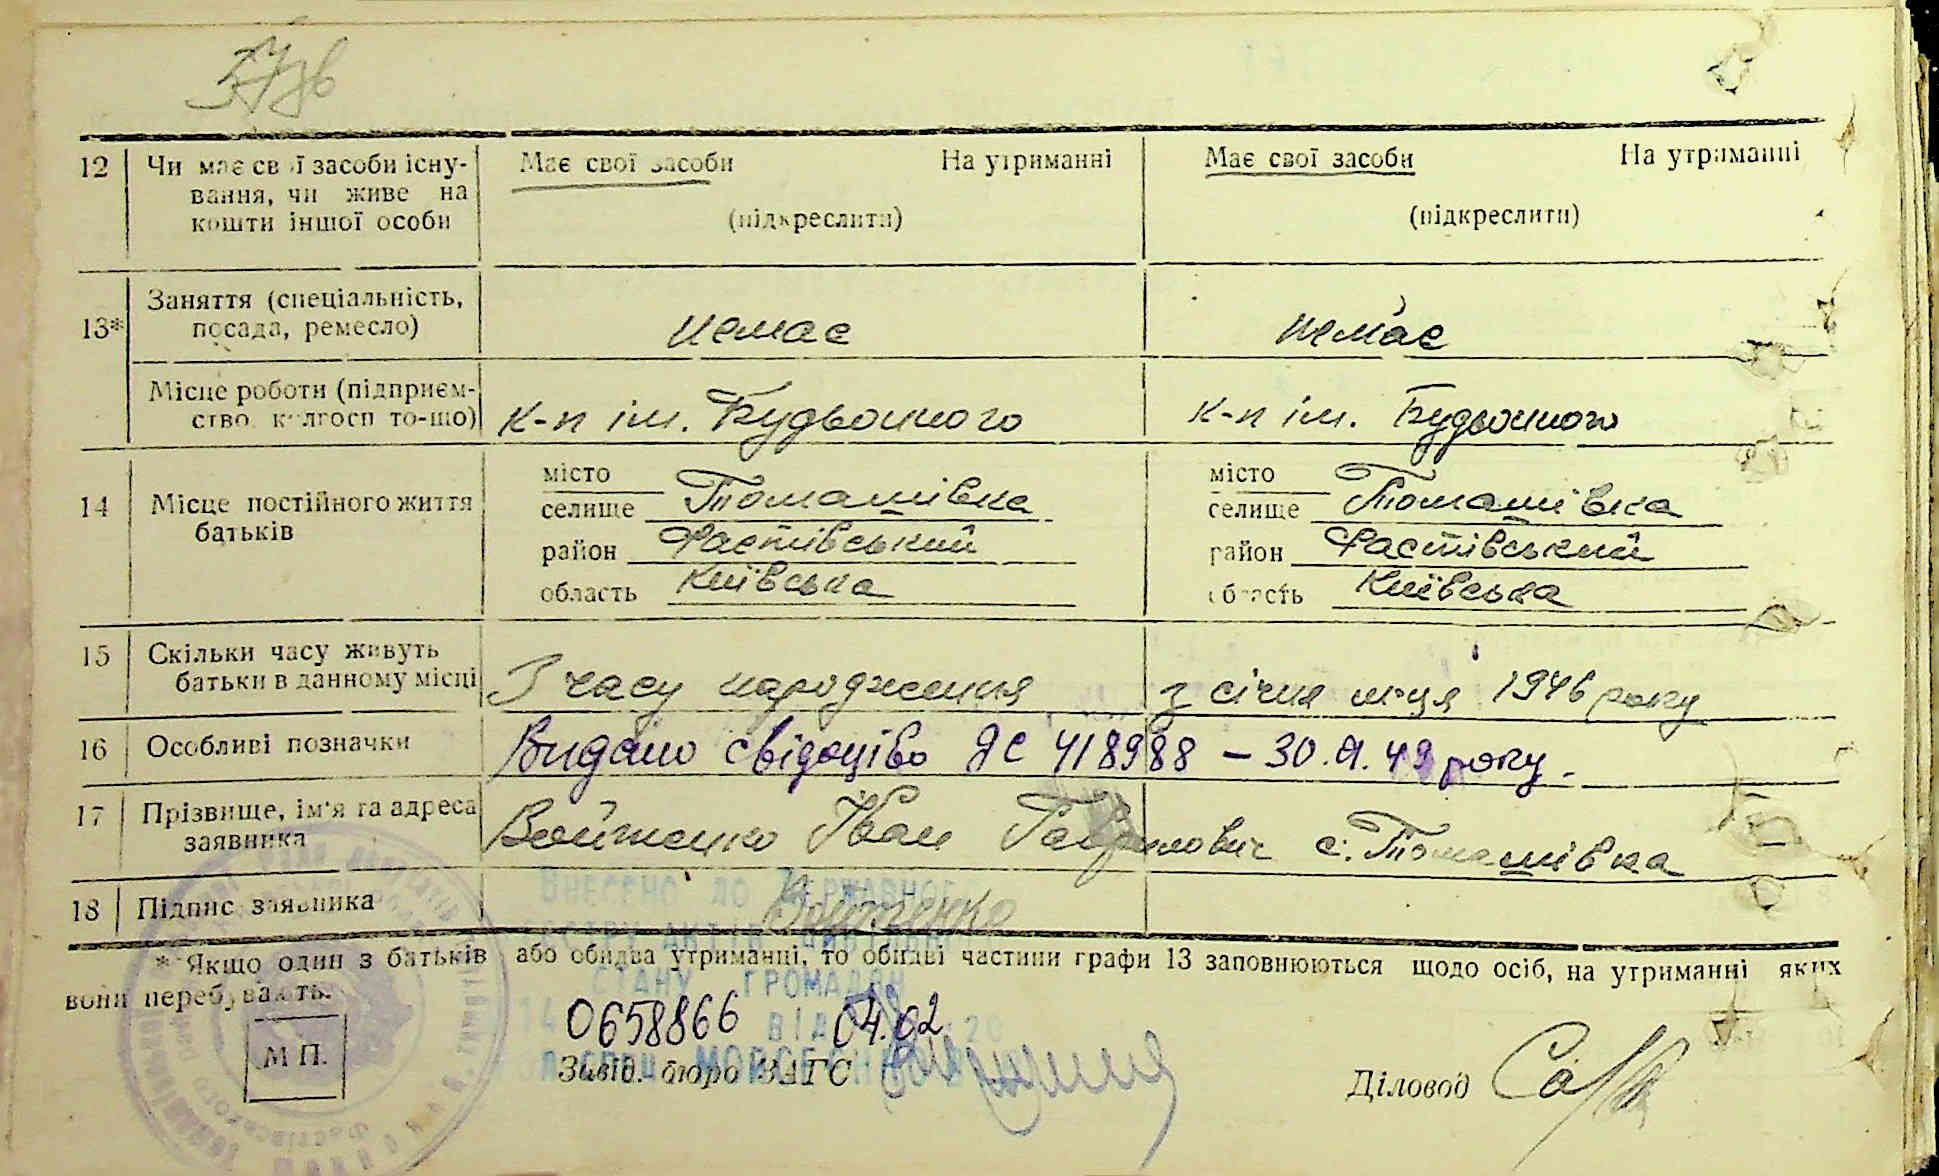 12 Чи має свої засоби існу- Має свої засоби На утриманні Має свої засоби На утриманні
вання, чи живе на
кошти іншої особи (підкреслити) (підкреслити)
Заняття (спеціальність,
13* посада, ремесло) немає немає
Місце роботи (підприєм-
ство, колгосп то-що) к-п ім. Будьонного к-п ім. Будьонного
місто місто
14 Місце постійного життя селище Томашівка селище Томашівка
батьків район Фастівський район Фастівський
область Київська область Київська
15 Скільки часу живуть
батьки в данному місці З часу народження з січня м-ця 1946 року
16 Особливі позначки Видано свідоцтво ЯС 418988 – 30. 49 року.
17 Прізвище, ім'я та адреса
заявника Войтенко Іван Гаврилович с. Томашівка
18 Підпис заявника Войтенко
ВНЕСЕНО ДО ДЕРЖАВНОГО
* Якщо один з батьків або обидва утриманні, то обидві частини графи 13 заповнюються щодо осіб, на утриманні яких
вони перебувають.
СТАНУ ГРОМАДЯН
0658866 04.02
ВІД
М П.
Завід. бюро ЗАГС
Діловод